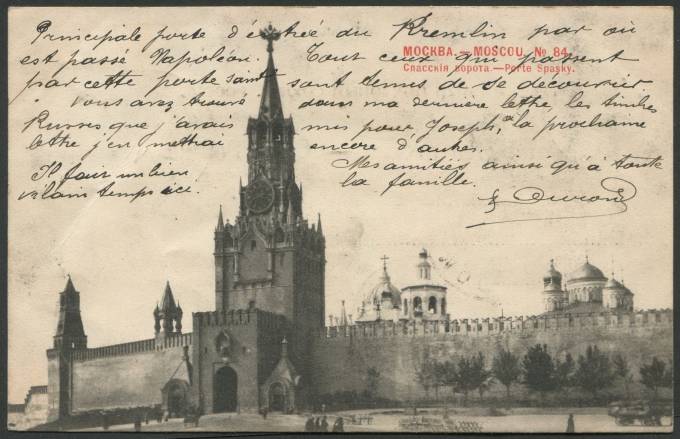 Principale porte d'entrée du Kremlin par où
est passé Napoléon. Tout ceux qui passent
par cette porte sainte sont tenus de se découvrir
Vous avez trouvé dans ma dernière lettre, les timbres
Russes que j'avais mis pour Joseph, à la prochaine
lettre j'en mettrai encore d'autres.
Il fait un bien
vilain temps ici.
Mes amitiés ainsi qu'à toute
la famille.
МОСКВА. — MOSCOU. No 84.
Спасскія ворота. — Porte Spasky.